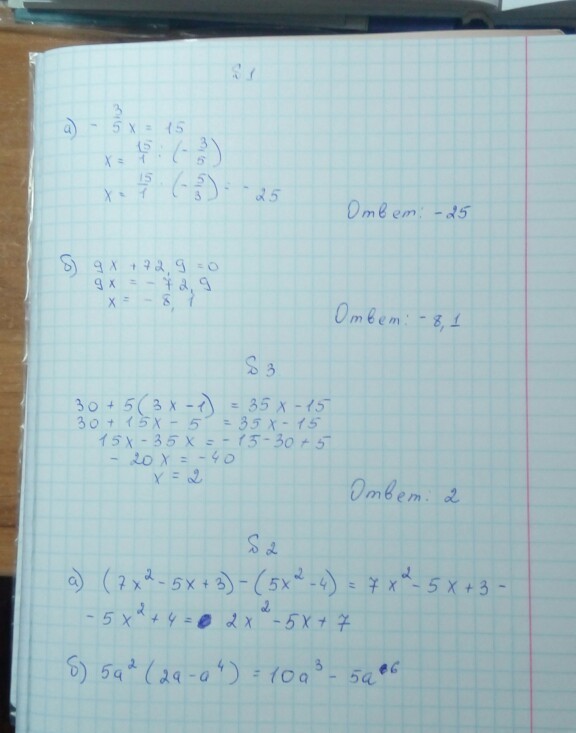 №1
а) - 3/5 x = 15
x = 15/1 : (- 3/5)
x = 15/1 · (- 5/3) = - 25
Ответ: -25
б) 9x + 72,9 = 0
9x = - 72,9
x = - 8,1
Ответ: - 8,1
№3
30 + 5(3x - 1) = 35x - 15
30 + 15x - 5 = 35x - 15
15x - 35x = - 15 - 30 + 5
- 20x = - 40
x = 2
Ответ: 2
№2
а) (7x² - 5x + 3) - (5x² - 4) = 7x² - 5x + 3 -
- 5x² + 4 = 2x² - 5x + 7
б) 5a² (2a - a⁴) = 10a³ - 5a⁶